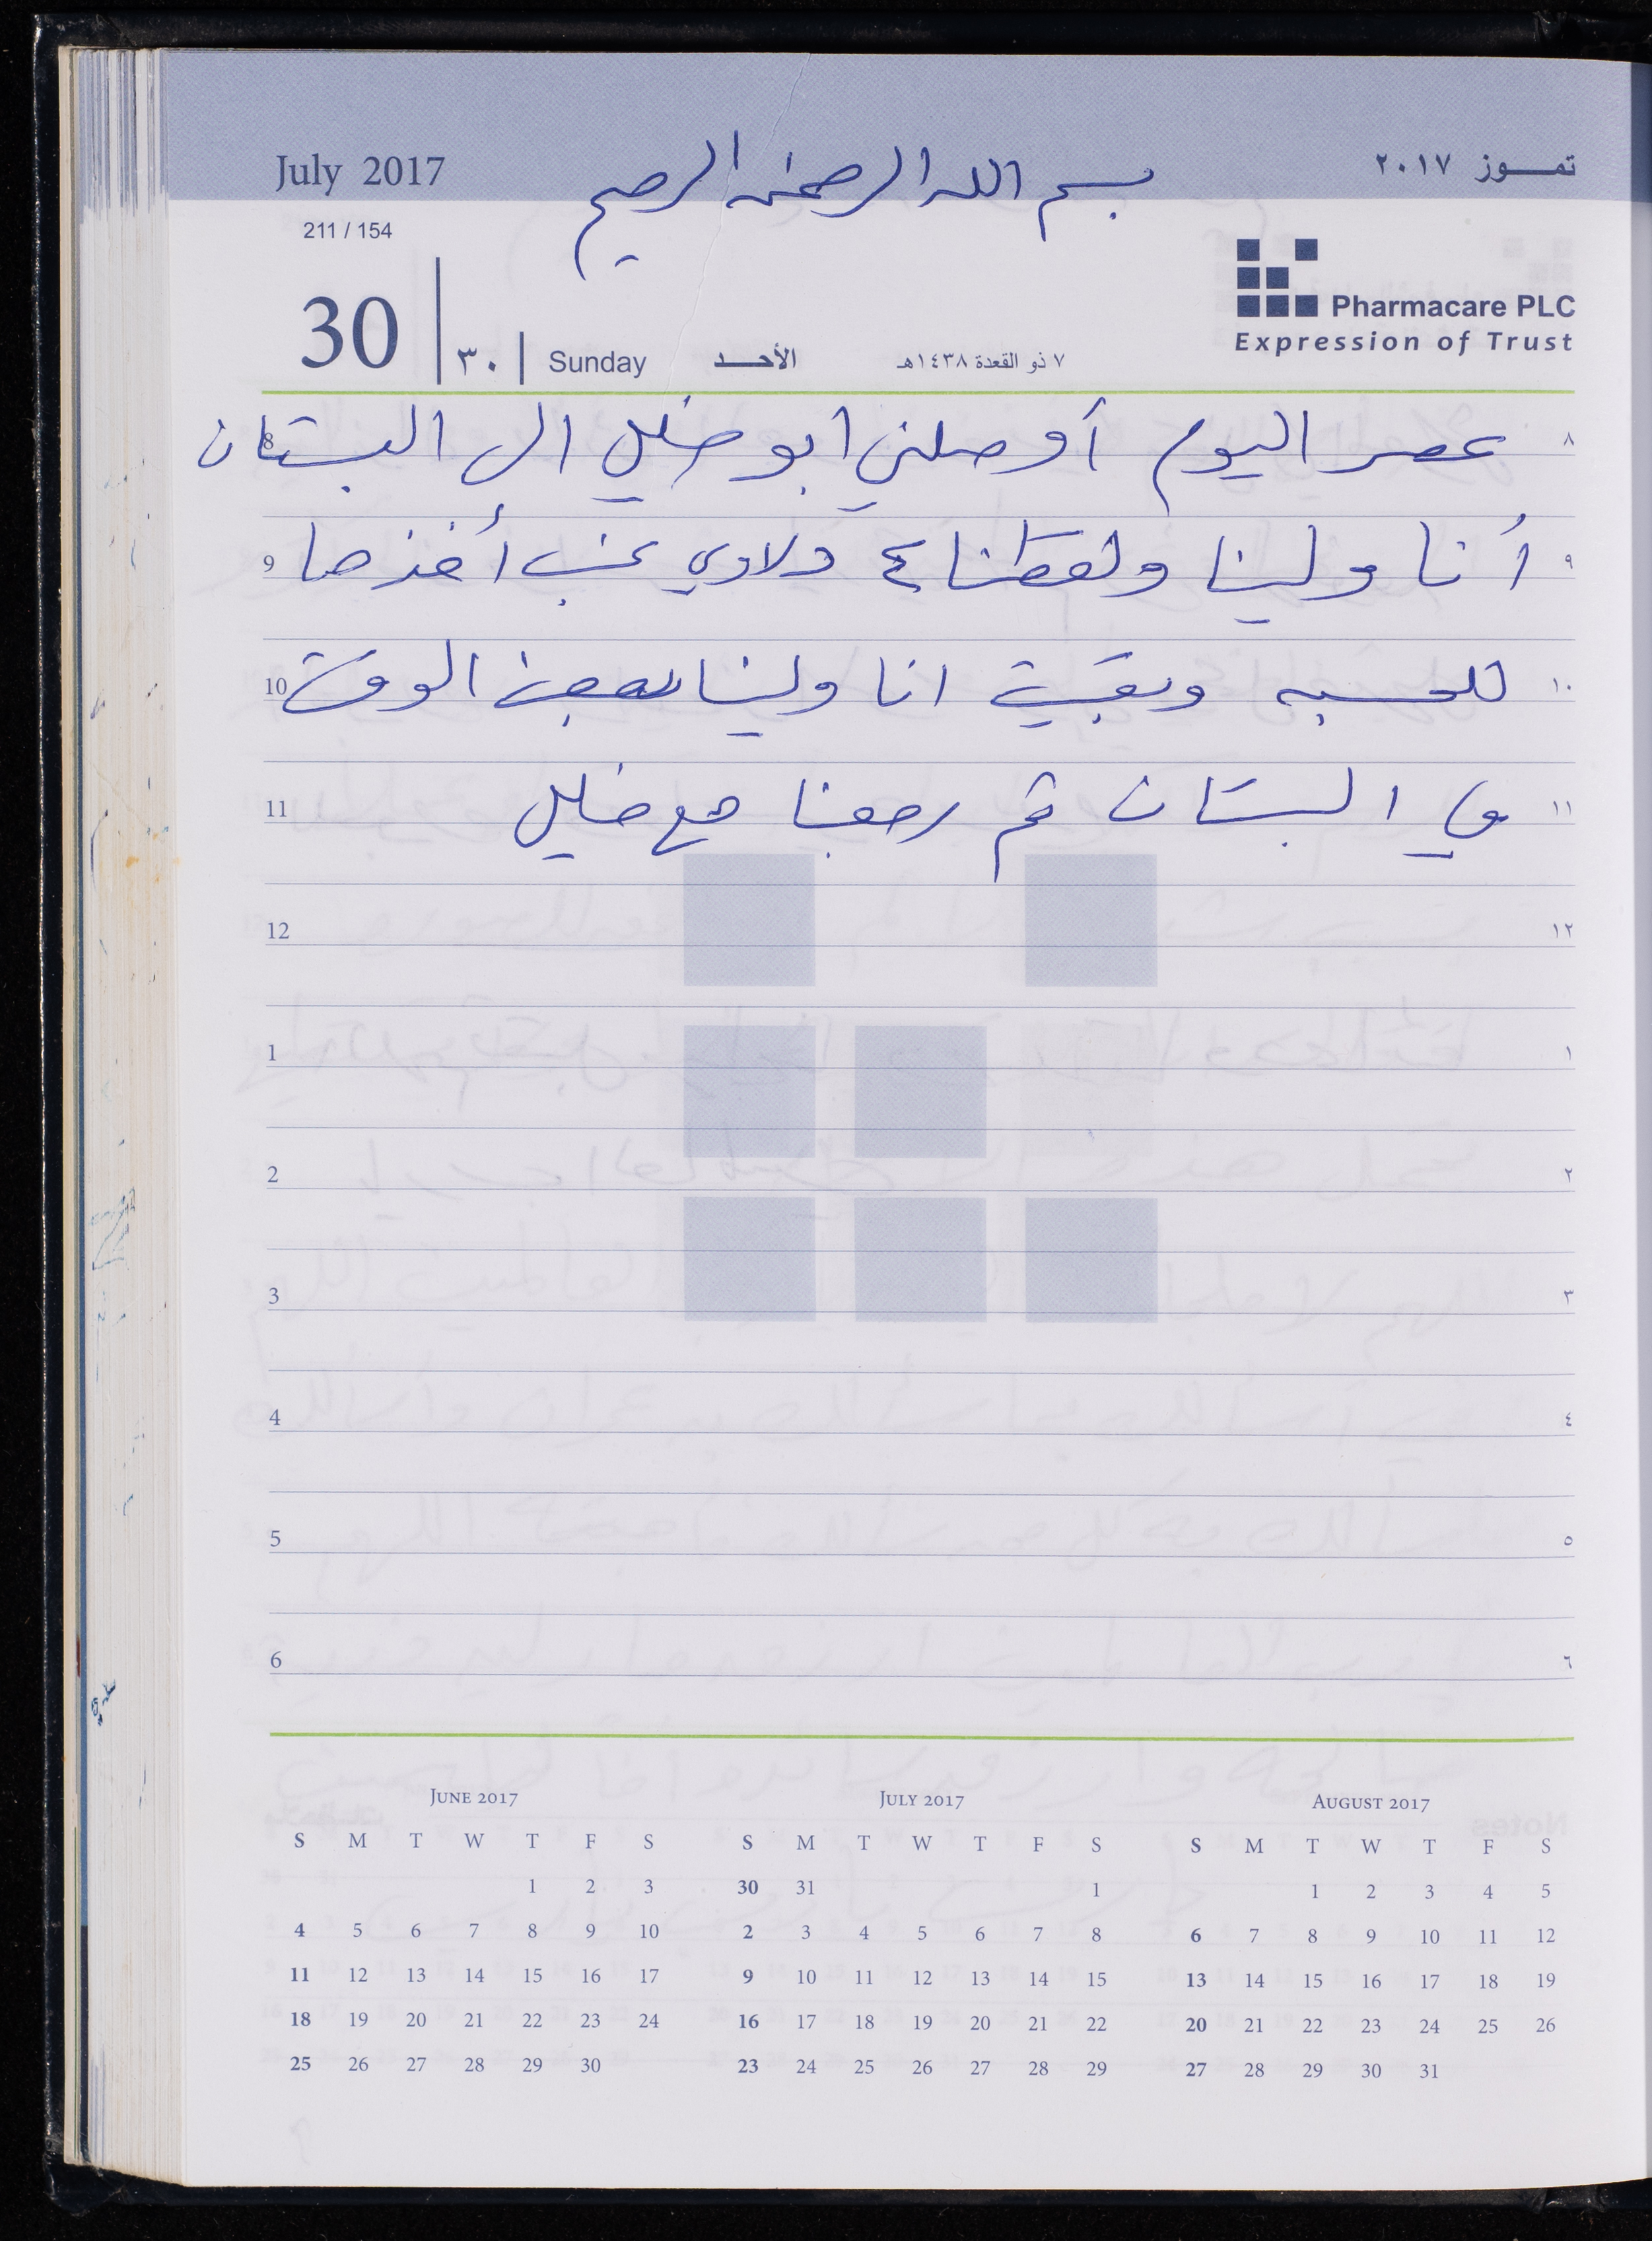 July 2017
بسم الله الرحمن الرحيم
تمـوز ٢٠١٧
211 / 154
30 ٣٠ Sunday الأحـد ٧ ذو القعدة ١٤٣٨هـ
Pharmacare PLC
Expression of Trust
8 عصر اليوم أوصلني ابو خليل الى البستان ٨
9 أنا ولينا ولقطنا ٤ دلاوي عنب أخذها ٩
10 للحسبه وبقيت انا ولينا بعض الوقت ١٠
11 في البستان ثم رجعنا مع خليل ١١
12 ١٢
1 ١
2 ٢
3 ٣
4 ٤
5 ٥
6 ٦
JUNE 2017
S M T W T F S
1 2 3
4 5 6 7 8 9 10
11 12 13 14 15 16 17
18 19 20 21 22 23 24
25 26 27 28 29 30
JULY 2017
S M T W T F S
30 31 1
2 3 4 5 6 7 8
9 10 11 12 13 14 15
16 17 18 19 20 21 22
23 24 25 26 27 28 29
AUGUST 2017
S M T W T F S
1 2 3 4 5
6 7 8 9 10 11 12
13 14 15 16 17 18 19
20 21 22 23 24 25 26
27 28 29 30 31